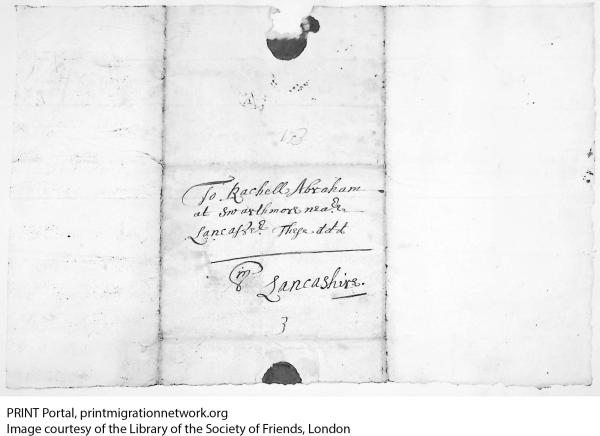 To Rachell Abraham
at Swarthmore neare
Lancastr. These ddd
in
Lancashire.
3
PRINT Portal, printmigrationnetwork.org
Image courtesy of the Library of the Society of Friends, London